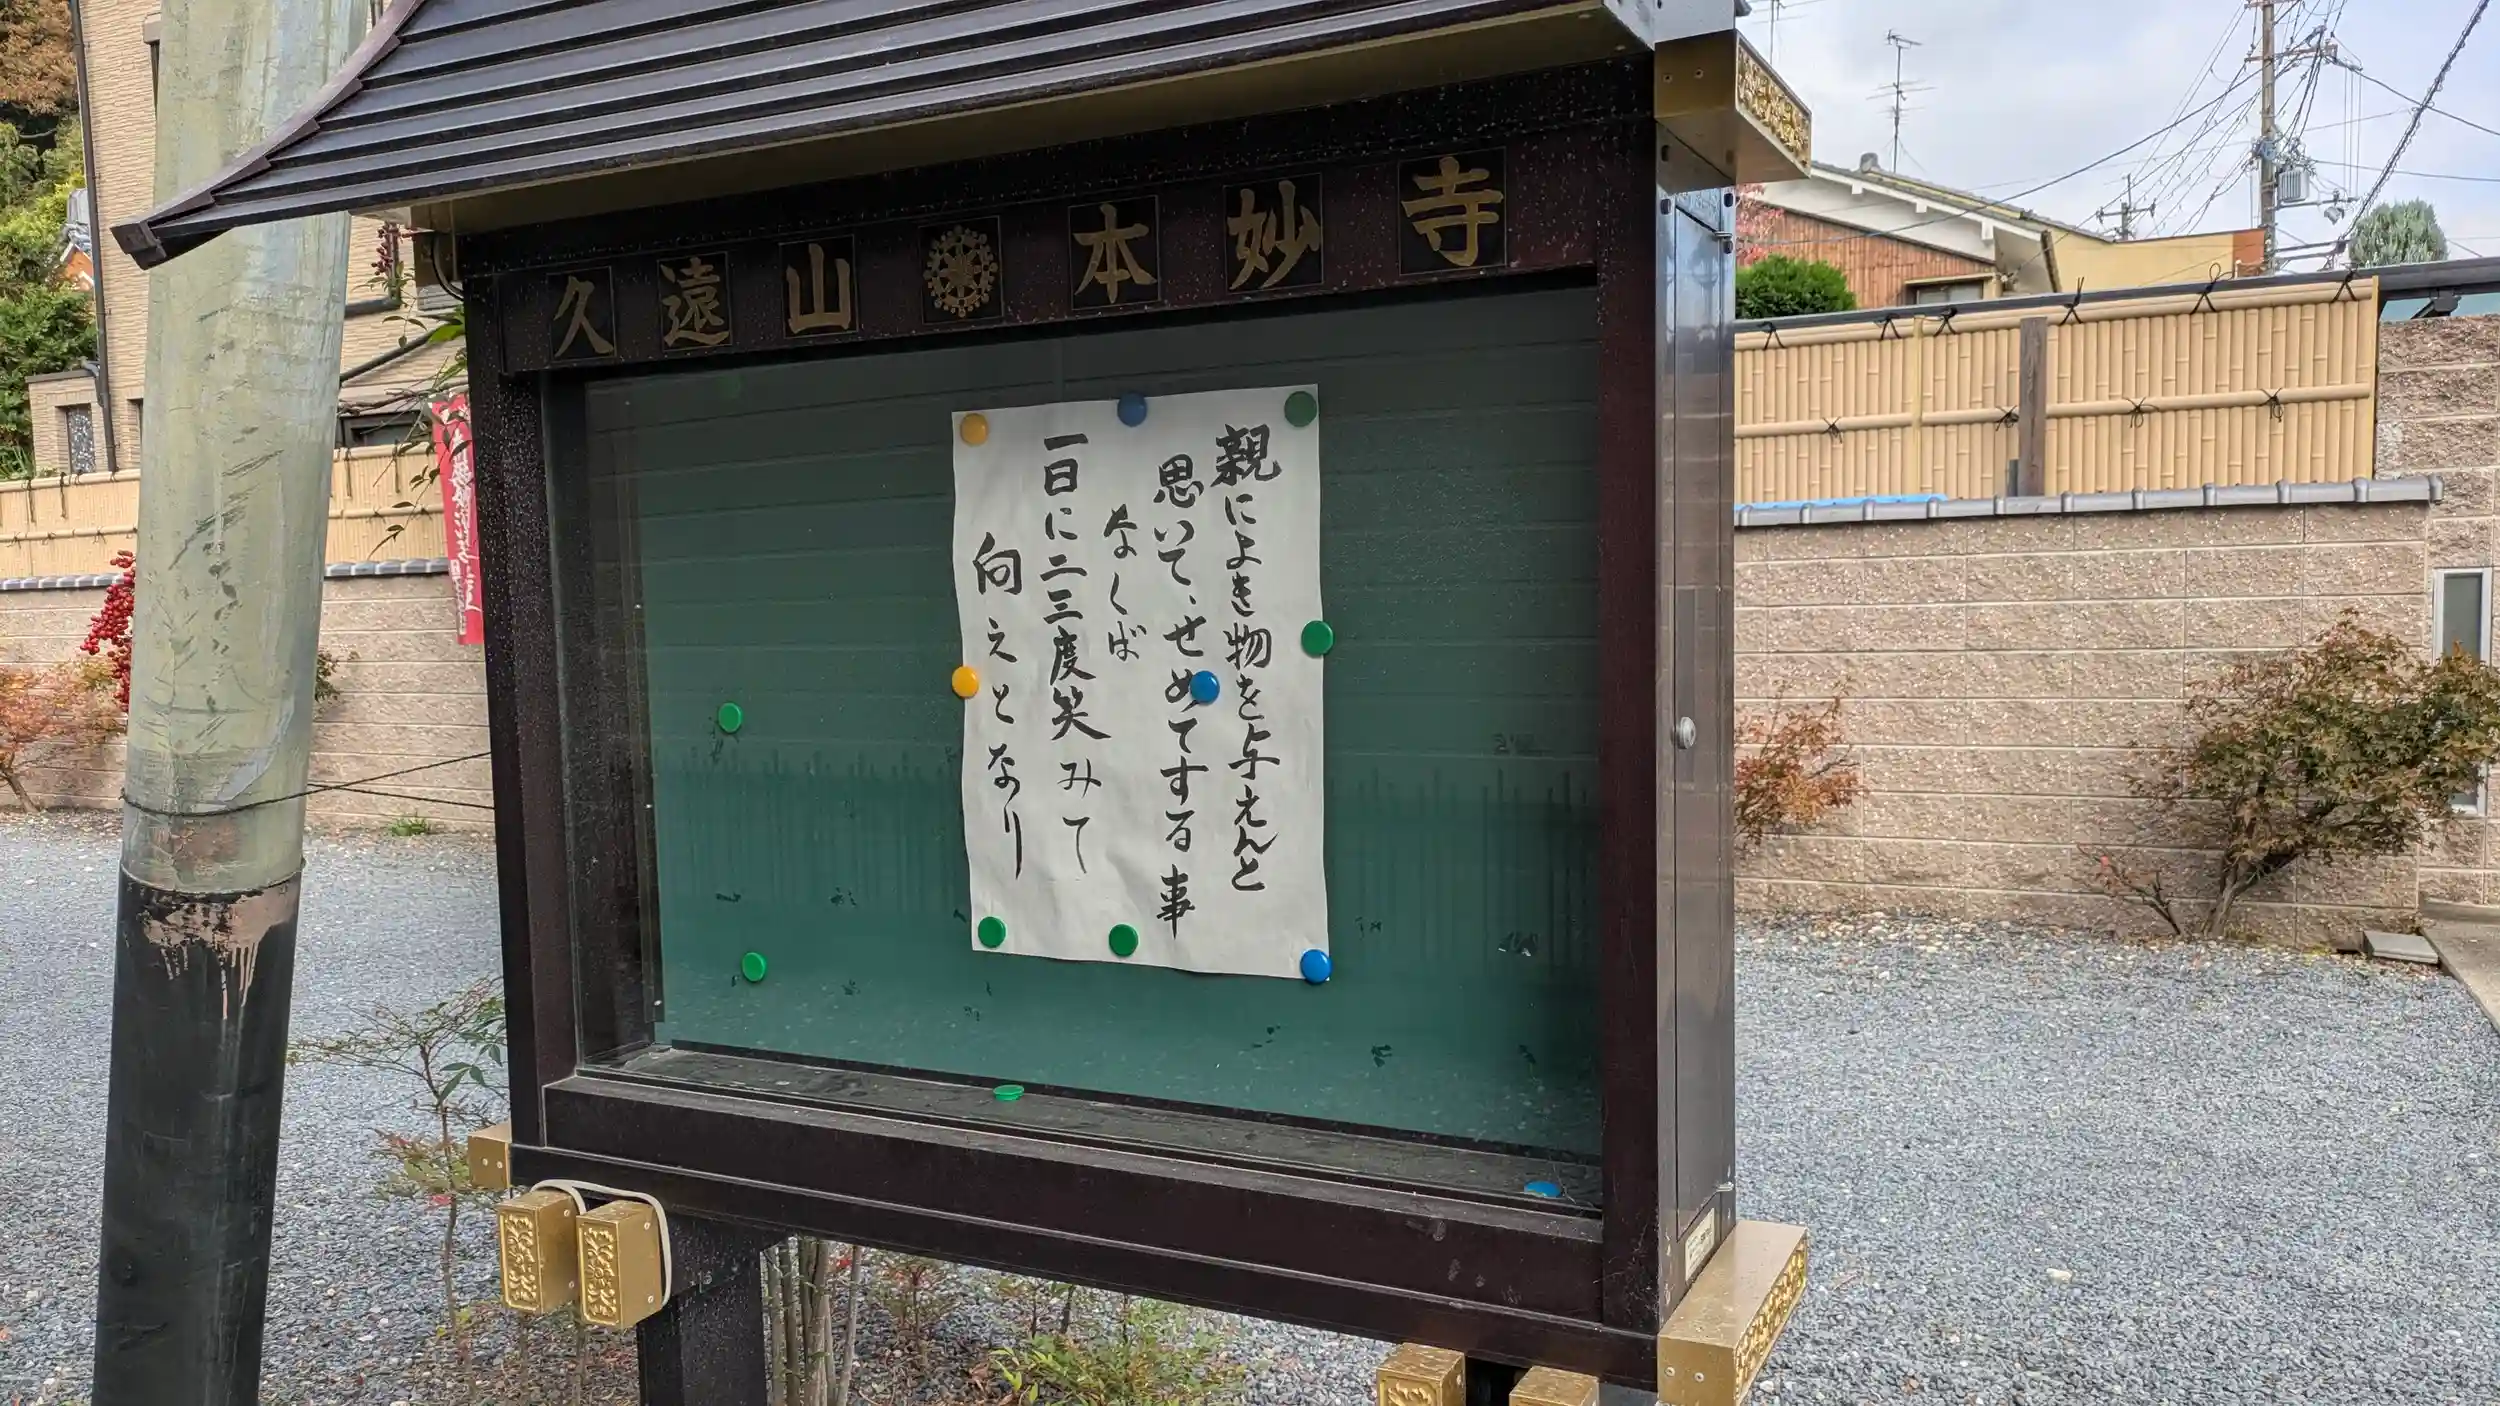 久遠山 本妙寺
親によき物を与えんと
思いて、せめてする事
なくば
一日に二三度笑みて
向えとなり